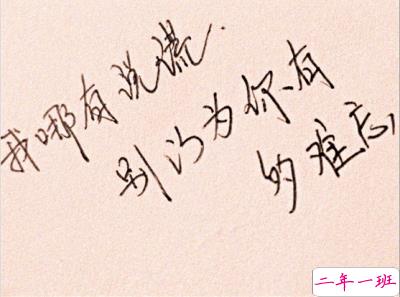 我哪有说谎.
别以为你有
的难忘,
二年一班